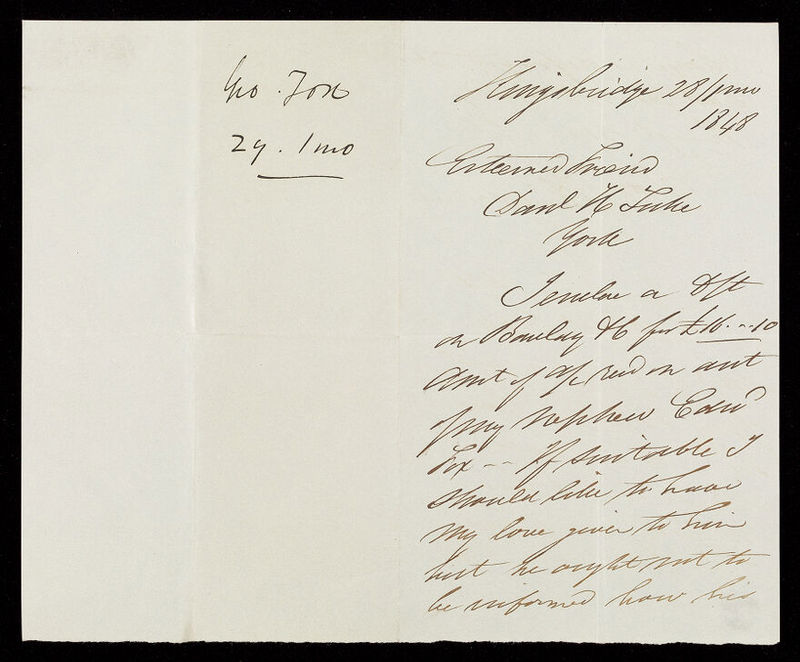 Geo. Fox
29. 1 mo
Kingsbridge 28/1 mo
1848
Esteemed Friend
Danl H Tuke
York
I enclose a Dft
on Barclay & C for £16. -- 10
Amt of a/c recd on acct
of my Nephew Edwd
Fox -- If suitable I
should like to have
my love given to him
but he ought not to
be informed how his